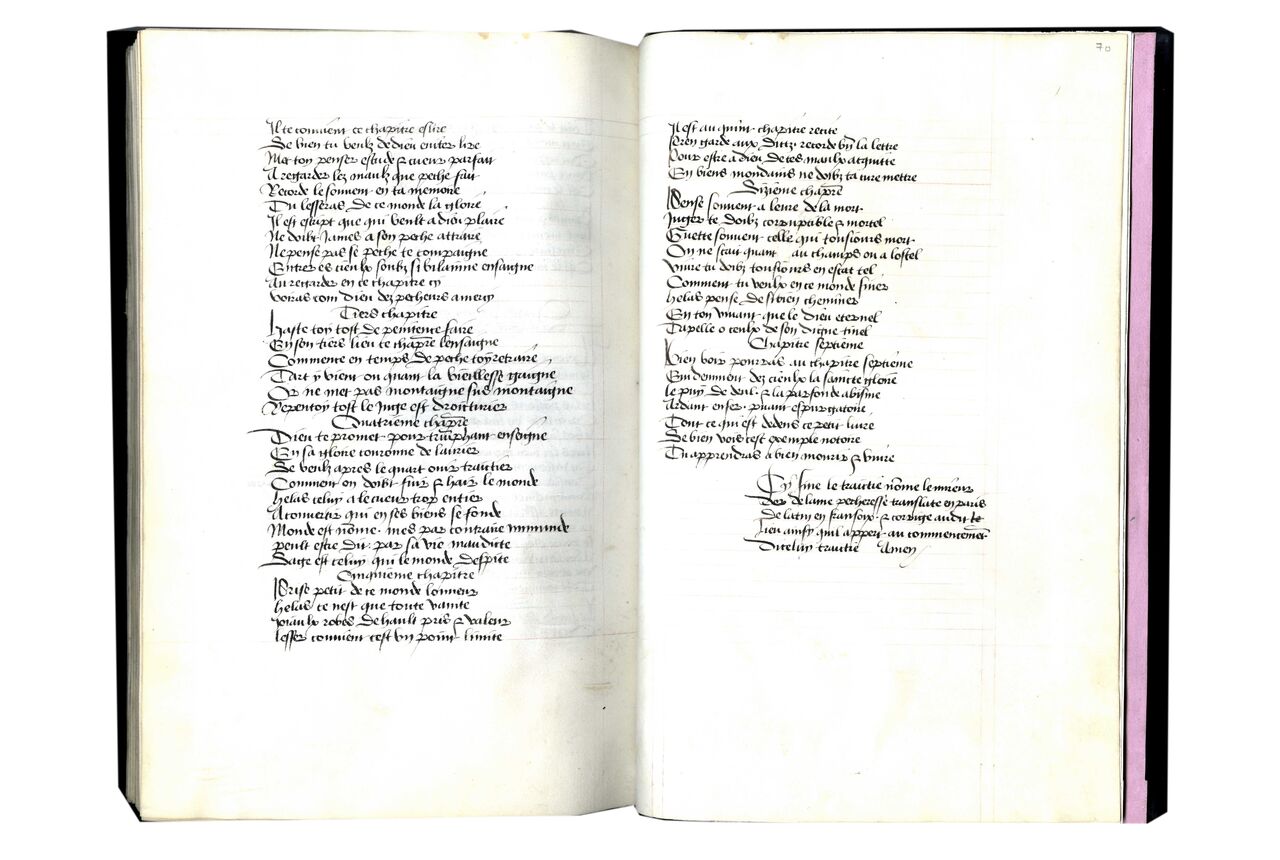 Il te convient ce chapitre eslire
Se bien tu veulx de dieu eviter lire
Met ton penser estude & cueur parfait
A regarder lez maulx que peche fait
Recorde le souvent en ta memoire
Tu lesseras de ce monde la gloire
Il est escript que qui veult a dieu plaire
Ne doibt James a son peche attraire
Ne pense pas se peche te compaigne
Entrer es cieulx soubz si vilainne ensaigne
Au regarder en ce chapitre cy
Voiras com dieu dez pecheurs a mercy
Tiers chapitre
Haste toy tost de penitence faire
En son tiers lieu ce chapre lensaigne
Commence en temps de peche toy retraire
Tart y vient on quant la vieillesse gaigne
Or ne met pas montaigne sus montaigne
Repen toy tost le Juge est droicturier
Quatrieme chapre
Dieu te promet pour triumphant enseigne
En sa gloire couronne de laurier
Se veulx apres le quart ouir traitier
Comment on doibt fuir & hair le monde
Helas celuy a le cueur trop entier
A convertir qui en ses biens se fonde
Monde est nomme mes par contraire immunde
peult estre dit par sa vie maudicte
Saige est celuy qui le monde despite
Cinquieme chapitre
Prise petit de ce monde lonneur
helas ce nest que toute vanite
Joiaulx robes de hault pris & valeur
lesser convient cest un point limite
70
Il est au quint chapitre recite
Pren garde aux ditz recorde bien la lettre
Pour estre a dieu de tes maulx acquitte
En biens mondains ne doibz ta cure mettre
Sizieme chapre
Pense souvent a leure de la mort
Juger te doibz corruptible & mortel
Guette souvent celle qui tousiours mort
On ne scait quant au champs ou a lostel
Vivre tu doibz tousiours en estat tel
Comment tu veulx en ce monde finer
helas pense de si bien cheminer
En ton vivant que le dieu eternel
Tapelle o ceulx de son digne tinel
Chapitre septieme
Bien voir pourras au chapitre septieme
Evidemment dez cieulx la saincte gloire
le puy de deul & la parfonde abisme
Ardant enfer puant espurgatoire
Tout ce qui est dedens ce petit livre
Se bien vois cest exemple notoire
Tu apprendras a bien mourir & vivre
Cy fine le traictie nomme le mireur
dor de lame pecheresse translate en paris
de latin en fransoix & corrige au dit
lieu ainsy quil appert au commencement
Diceluy traitie Amen